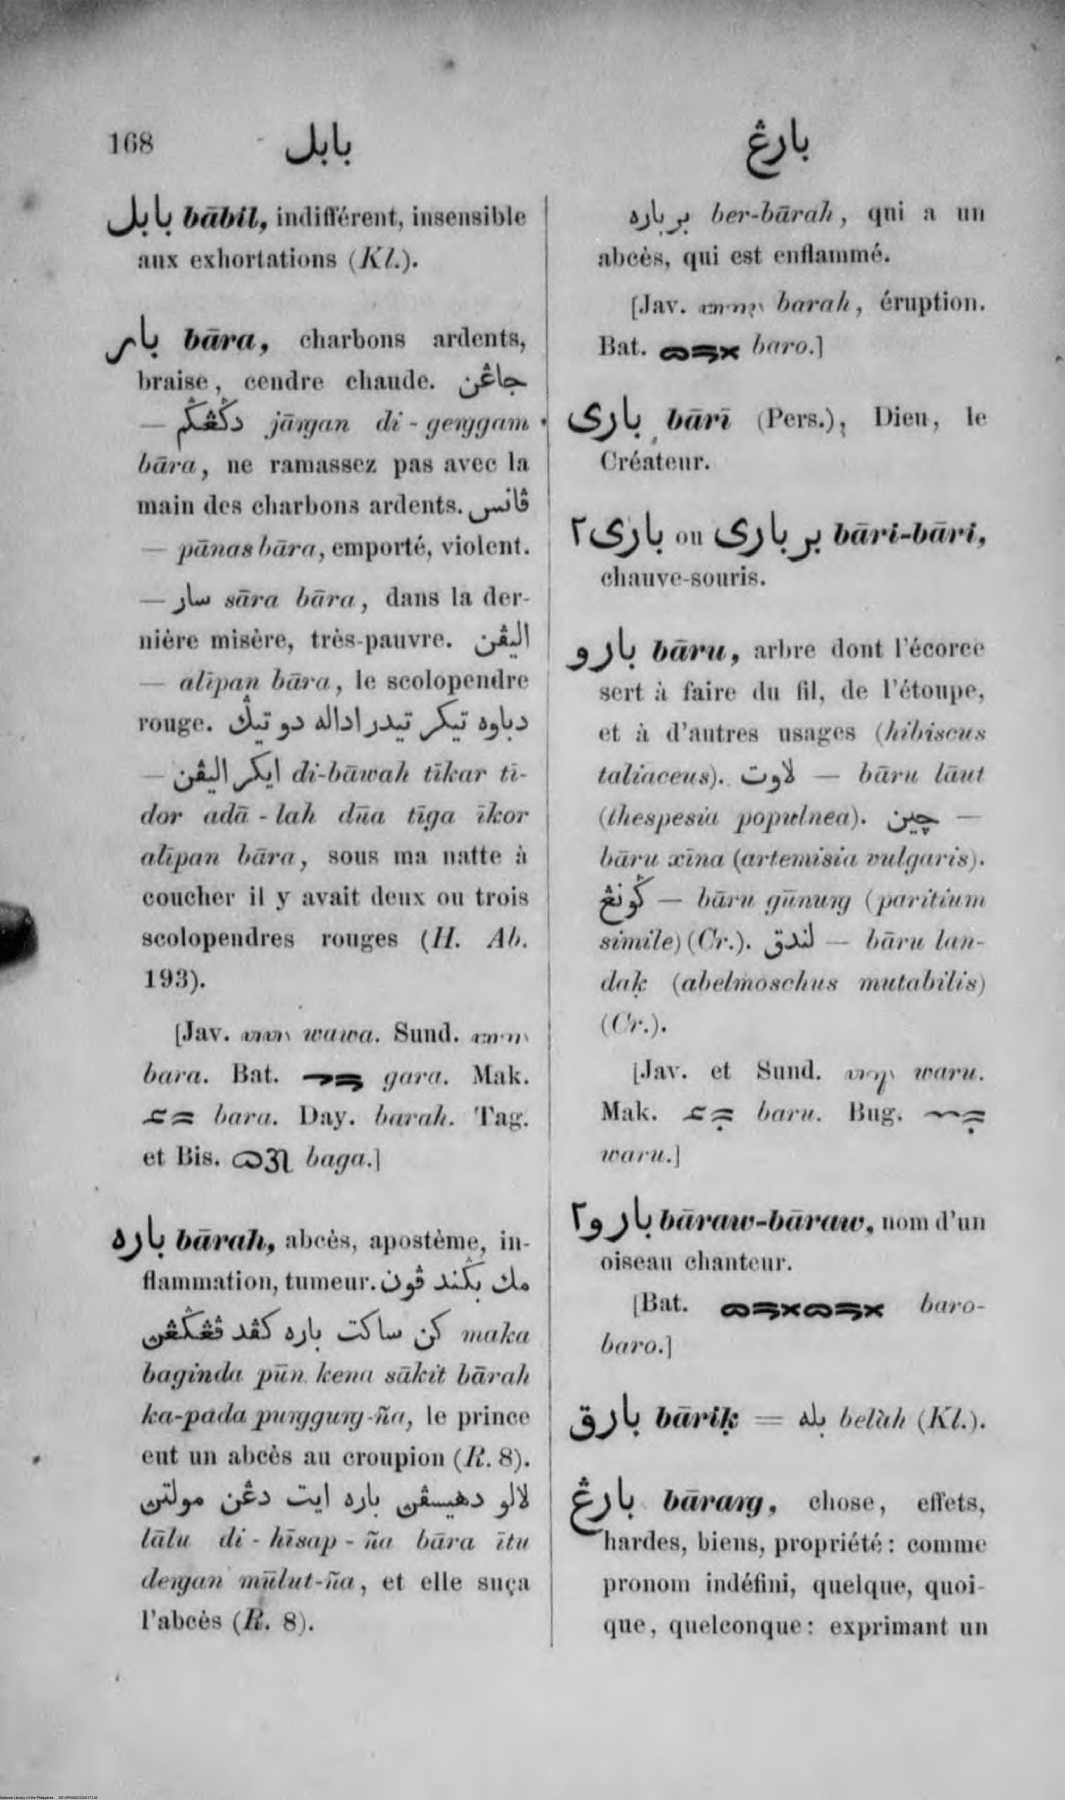 168 بابل بارڠ
بابل bābil, indifférent, insensible
aux exhortations (Kl.).
بار bāra, charbons ardents,
braise, cendre chaude. جاڠن
— دڬڠڬم jāṅgan di-geṅggam
bāra, ne ramassez pas avec la
main des charbons ardents. ڤانس
— pānas bāra, emporté, violent.
— سار sāra bāra, dans la der-
nière misère, très-pauvre. اليڤن
— alīpan bāra, le scolopendre
rouge. دباوه تيكر تيدر اداله دو تيݢ
— ايكر اليڤن di-bāwah tīkar tī-
dor adā-lah dūa tīga īkor
alīpan bāra, sous ma natte à
coucher il y avait deux ou trois
scolopendres rouges (H. Ab.
193).
[Jav. wawa. Sund.
bara. Bat. gara. Mak.
bara. Day. barah. Tag.
et Bis. baga.]
باره bārah, abcès, apostème, in-
flammation, tumeur. مك بڬند ڤون
كن ساكت باره كڤد ڤڠڬڠڽ maka
baginda pūn kena sākit bārah
ka-pada puṅgguṅg-ña, le prince
eut un abcès au croupion (R. 8).
لالو دهيسڤڽ باره ايت دڠن مولتڽ
lālu di-hīsap-ña bāra ītu
deṅgan mūlut-ña, et elle suça
l'abcès (R. 8).
بر باره ber-bārah, qui a un
abcès, qui est enflammé.
[Jav. barah, éruption.
Bat. baro.]
بارى bārī (Pers.), Dieu, le
Créateur.
بارى٢ ou بر بارى bāri-bāri,
chauve-souris.
بارو bāru, arbre dont l'écorce
sert à faire du fil, de l'étoupe,
et à d'autres usages (hibiscus
taliaceus). لاوت — bāru lāut
(thespesia populnea). چين —
bāru xīna (artemisia vulgaris).
ڬونڠ — bāru gūnuṅg (paritium
simile) (Cr.). لندق — bāru lan-
daḳ (abelmoschus mutabilis)
(Cr.).
[Jav. et Sund. waru.
Mak. baru. Bug.
waru.]
بارو٢ bāraw-bāraw, nom d'un
oiseau chanteur.
[Bat. baro-
baro.]
بارق bāriḳ = بله belàh (Kl.).
بارڠ bāraṅg, chose, effets,
hardes, biens, propriété: comme
pronom indéfini, quelque, quoi-
que, quelconque: exprimant un